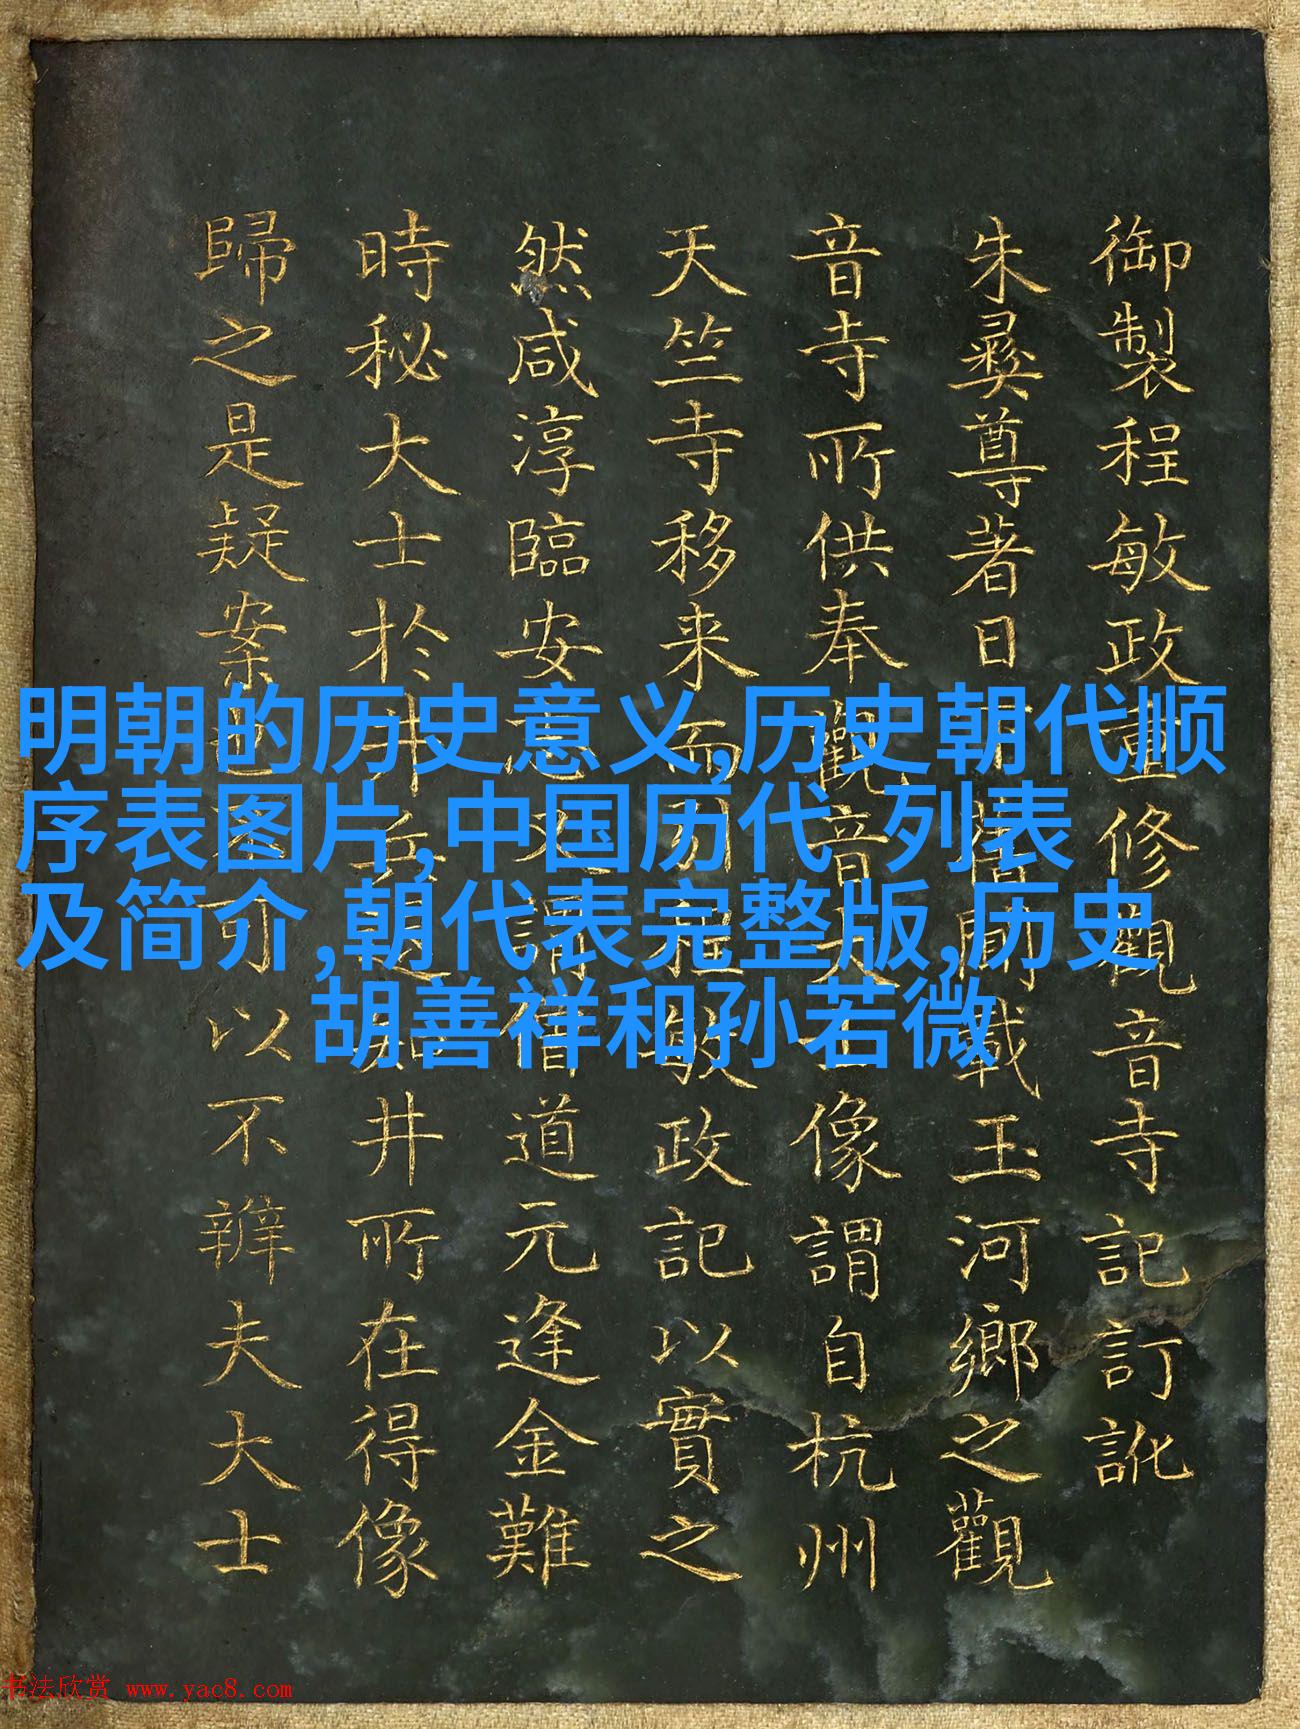 御製程敏政重修觀音寺記訂訛
朱彝尊著日下舊聞載玉河鄉之觀
音寺所供奉觀音大士像謂自杭州
天竺寺移来而引程敏政記以實之
然咸淳臨安志又謂僧道元逢金難
時秘大士於井兵退知井所在得像
歸之是疑案也不可以不辨夫大士
明朝的历史意义,历史朝代顺
序表图片,中国历代 列表
及简介,朝代表完整版,历史
胡善祥和孙若微
书法欣赏 www.yac8.com